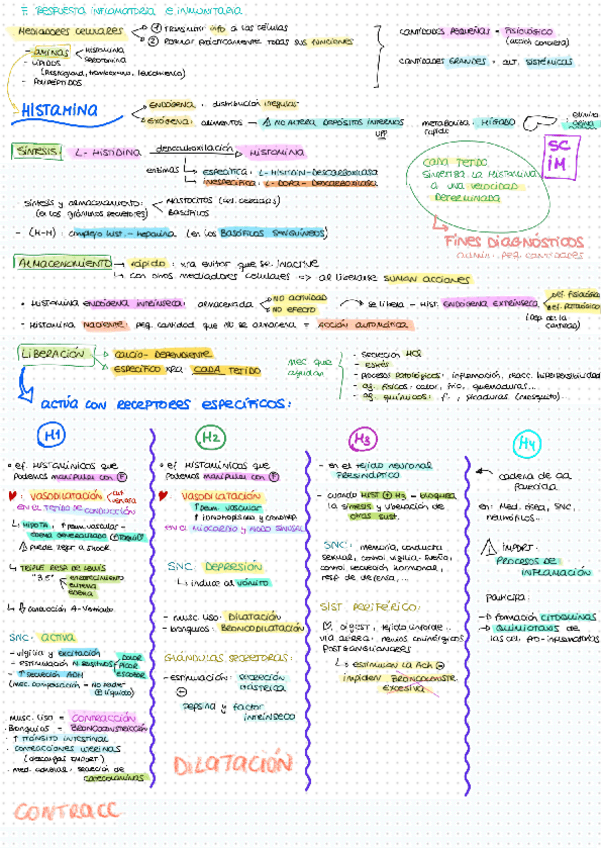 RESPUESTA INFLAMATORIA E INMUNITARIA
MEDIADORES CELULARES
① Transmitir info a las células
② Formar prácticamente todas sus funciones
CANTIDADES PEQUEÑAS = FISIOLÓGICO
(acción concreta)
CANTIDADES GRANDES = alt. SISTÉMICAS
- AMINAS
HISTAMINA
SEROTONINA
- LÍPIDOS
- POLIPÉPTIDOS
HISTAMINA
ENDÓGENA: distribución irregular
EXÓGENA: alimentos → NO ALTERA DEPÓSITOS INTERNOS
metaboliza: HÍGADO
rápido
SÍNTESIS: L-HISTIDINA descarboxilación HISTAMINA
enzimas
ESPECÍFICA: L-HISTIDIN-DESCARBOXILASA
INESPECÍFICA: L-DOPA-DESCARBOXILASA
SC
iM
CADA TEJIDO
SINTETIZA LA HISTAMINA
A UNA VELOCIDAD
DETERMINADA
FINES DIAGNÓSTICOS
admin. peq. cantidades
Síntesis y almacenamiento:
(en los gránulos secretores)
MASTOCITOS (tej. cebadas)
BASÓFILOS
- (H-H): complejo hist. - heparina (en los BASÓFILOS SANGUÍNEOS)
ALMACENAMIENTO → rápido: xra evitar que se inactive
↳ con otros mediadores celulares => al liberarse SUMAN ACCIONES
• HISTAMINA ENDÓGENA INTRÍNSECA: almacenada
NO ACTIVIDAD
NO EFECTO
se libera - HIST. ENDÓGENA EXTRÍNSECA
(Dep. de la
cantidad)
• HISTAMINA NACIENTE: peq. cantidad que no se almacena = ACCIÓN AUTOMÁTICA
LIBERACIÓN
CALCIO-DEPENDIENTE
ESPECÍFICO xra CADA TEJIDO
MEC que
ayudan
- secreción HCl
- estrés
- procesos patológicos: inflamación, reacc. hipersensibilidad
- ag. físicos: calor, frío, quemaduras...
- ag. químicos: picaduras (mosquito)...
ACTÚA CON RECEPTORES ESPECÍFICOS:
H1
• ef. HISTAMÍNICOS que
podemos manipular con
VASODILATACIÓN
EN EL TEJIDO DE CONDUCCIÓN
↳ HIPOTA, ↑ perm. vascular -
puede llegar a shock
↳ TRIPLE RESP. DE LEWIS
"3 E"
enrojecimiento
edema
↳ conducción A-Ventricular
SNC: ACTIVA
- vigilia y excitación
- estimulación N sensitivos
DOLOR
PICOR
ESCOZOR
- ↑ secreción ADH
(mec. compensación - no perder
líquidos)
Musc. lisa = CONTRACCIÓN
Bronquios - BRONCOCONSTRICCIÓN
• ↑ TRÁNSITO INTESTINAL
• contracciones uterinas
• med. adrenal: secreción de
catecolaminas
CONTRACC
H2
• ef. HISTAMÍNICOS que
podemos manipular con
VASODILATACIÓN
↑ perm. vascular
EN EL MIOCARDIO Y NODO SINUSAL
SNC: DEPRESIÓN
↳ induce al vómito
- musc. liso: DILATACIÓN
- bronquios: BRONCODILATACIÓN
GLÁNDULAS SECRETORAS:
- estimulación: secreción
gástrica
pepsina y factor
intrínseco
DILATACIÓN
H3
- en el tejido neuronal
PRESINÁPTICO
- cuando HIST ⊕ H3 - bloquea
la síntesis y liberación de
otras sust.
SNC: memoria, conducta
sexual, control vigilia, sueño,
control secreción hormonal,
resp. de defensa,...
SIST. PERIFÉRICO:
vía aérea: nervios colinérgicos
POSTGANGLIONARES
↳ estimulan la Ach
impiden BRONCOCONSTR.
EXCESIVA
H4
cadena de aa
parecida
en: Med. ósea, SNC,
neutrófilos...
import.
PROCESOS DE
INFLAMACIÓN
participa:
→ formación CITOQUINAS
→ QUIMIOTAXIS de
las cél. pro-inflamatorias